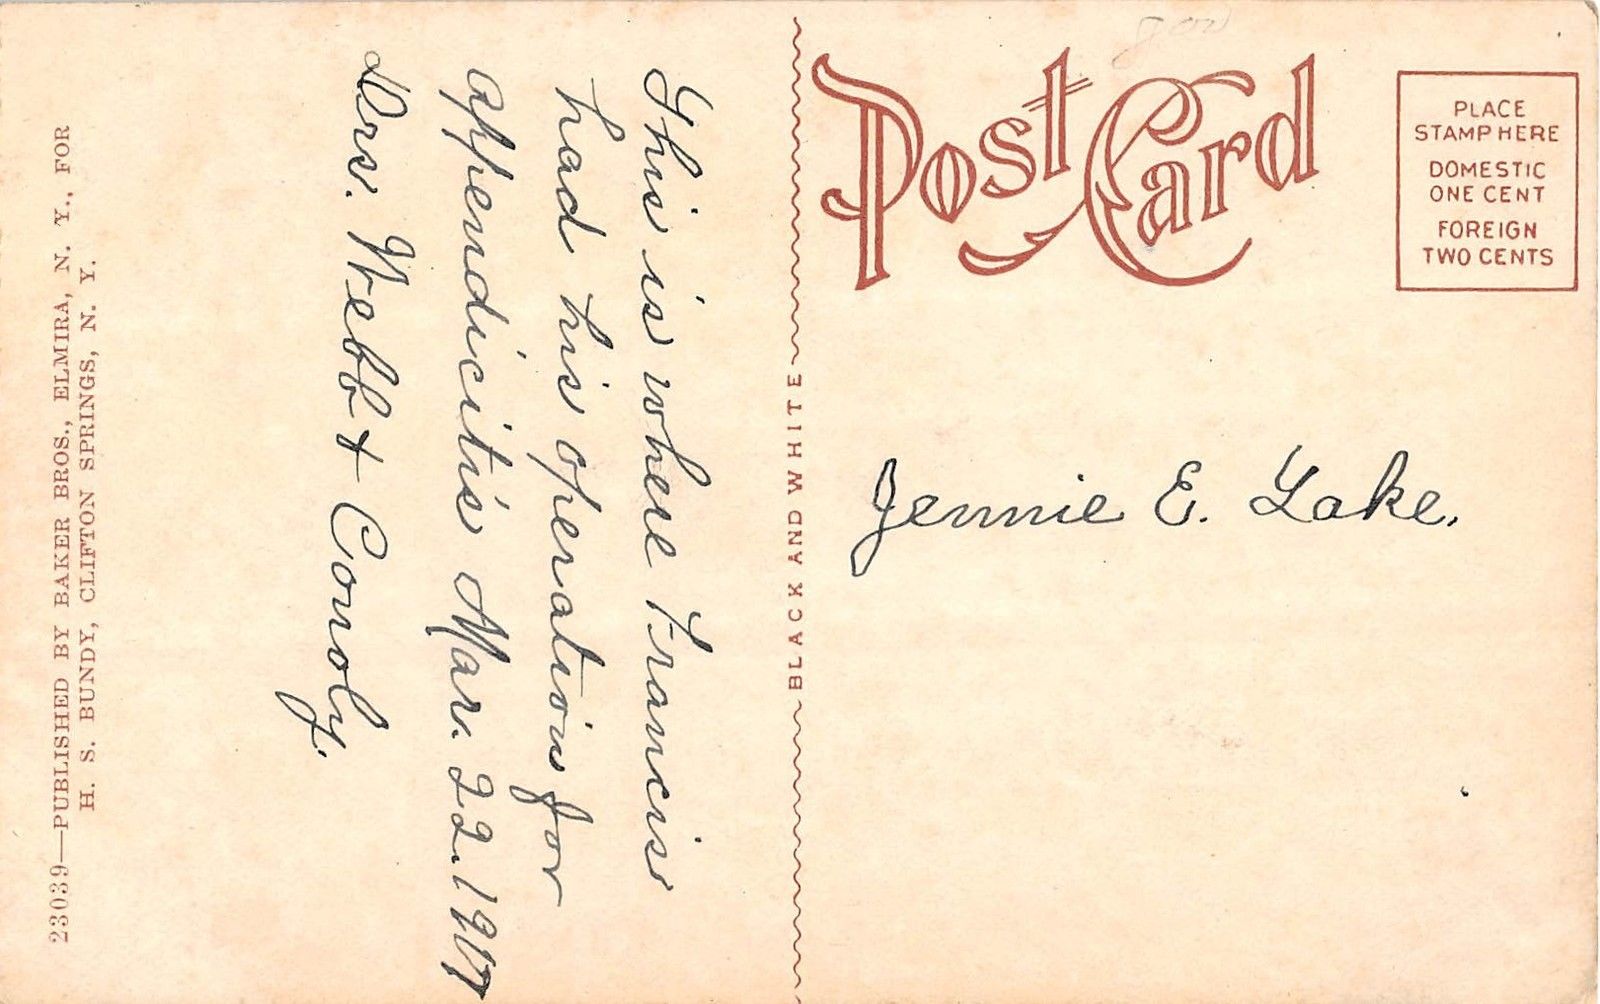 Post Card
PLACE
STAMP HERE
DOMESTIC
ONE CENT
FOREIGN
TWO CENTS
This is where Francis
had his operation for
appendicitis Mar. 22. 1917
Drs. Webb & Conoly.
Jennie E. Lake.
BLACK AND WHITE
23039—PUBLISHED BY BAKER BROS., ELMIRA, N. Y., FOR
H. S. BUNDY, CLIFTON SPRINGS, N. Y.